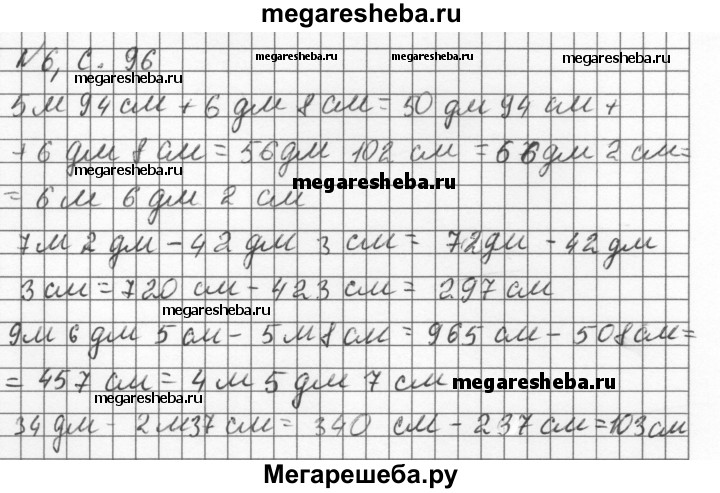 megaresheba.ru
№6, с. 96
megaresheba.ru megaresheba.ru megaresheba.ru
megaresheba.ru
5 м 94 см + 6 дм 8 см = 50 дм 94 см +
+ 6 дм 8 см = 56 дм 102 см = 66 дм 2 см =
megaresheba.ru
megaresheba.ru
= 6 м 6 дм 2 см
7 м 2 дм - 42 дм 3 см = 72 дм - 42 дм
3 см = 720 см - 423 см = 297 см
megaresheba.ru
9 м 6 дм 5 см - 5 м 8 см = 965 см - 508 см =
= 457 см = 4 м 5 дм 7 см
megaresheba.ru
34 дм - 2 м 37 см = 340 см - 237 см = 103 см
Мегарешеба.ру